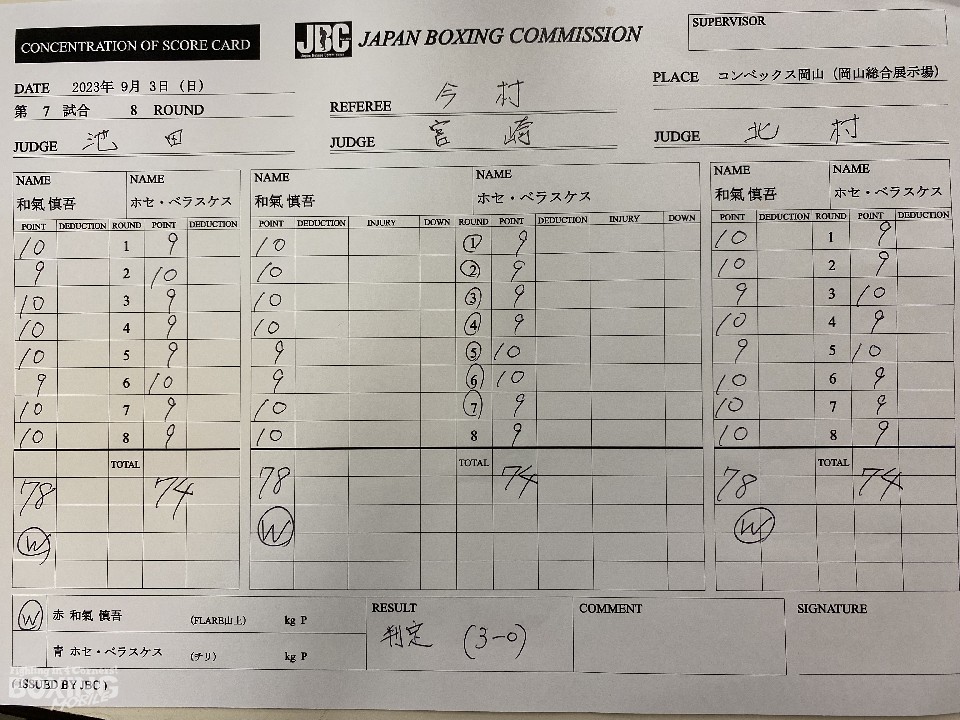 CONCENTRATION OF SCORE CARD
JBC JAPAN BOXING COMMISSION
SUPERVISOR
DATE 2023年 9月 3日 (日)
PLACE コンベックス岡山 (岡山総合展示場)
第 7 試合 8 ROUND
REFEREE 今村
JUDGE 池田
JUDGE 宮崎
JUDGE 北村
NAME NAME NAME NAME NAME NAME
和氣 慎吾 ホセ・ベラスケス 和氣 慎吾 ホセ・ベラスケス 和氣 慎吾 ホセ・ベラスケス
POINT DEDUCTION ROUND POINT DEDUCTION POINT DEDUCTION INJURY DOWN ROUND POINT DEDUCTION INJURY DOWN POINT DEDUCTION ROUND POINT DEDUCTION
10 1 9 10 1 9 10 1 9
9 2 10 10 2 9 10 2 9
10 3 9 10 3 9 9 3 10
10 4 9 10 4 9 10 4 9
10 5 9 9 5 10 9 5 10
9 6 10 9 6 10 10 6 9
10 7 9 10 7 9 10 7 9
10 8 9 10 8 9 10 8 9
TOTAL TOTAL TOTAL
78 74 78 74 78 74
W W W
W 赤 和氣 慎吾 (FLARE山上) kg P
青 ホセ・ベラスケス (チリ) kg P
RESULT
判定 (3-0)
COMMENT
SIGNATURE
(ISSUED BY JBC)
BOXING
MOBILE